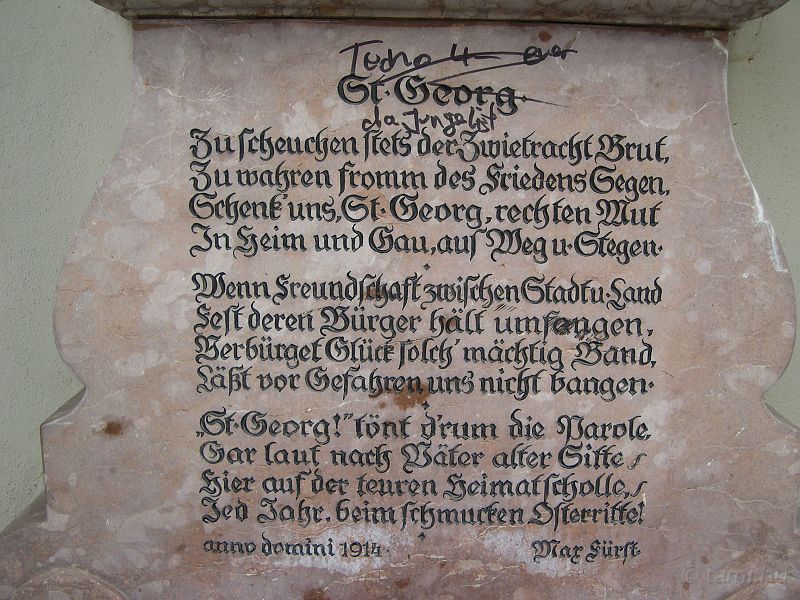 Techno 4-ever
St. Georg.
da Jungalist
Zu scheuchen stets der Zwietracht Brut,
Zu wahren fromm des Friedens Segen,
Schenk' uns, St. Georg, rechten Mut
In Heim und Gau, auf Weg u. Stegen.
Wenn Freundschaft zwischen Stadt u. Land
Fest deren Bürger hält umfangen,
Verbürget Glück solch' mächtig Band,
Läßt vor Gefahren uns nicht bangen.
„St. Georg!" tönt d'rum die Parole,
Gar laut nach Väter alter Sitte,
Hier auf der teuren Heimatscholle,
Jed Jahr, beim schmucken Osterritte!
anno domini 1914. Max Fürst.